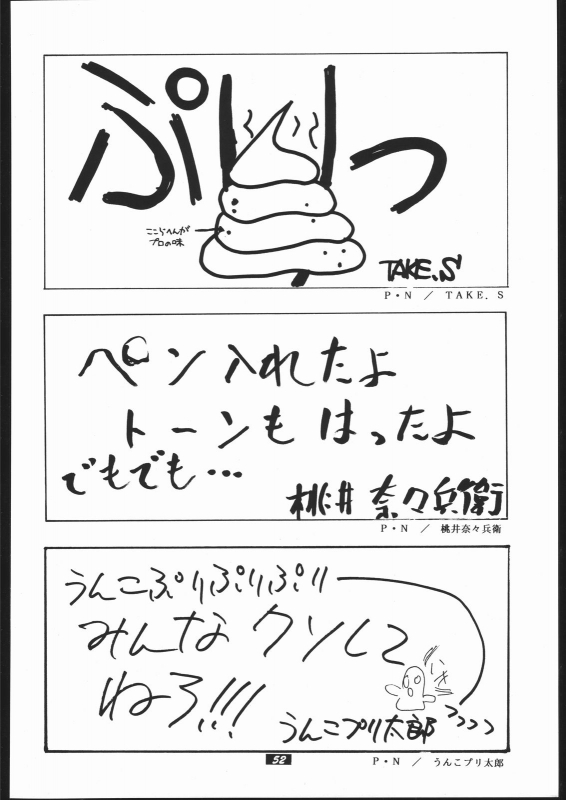 ぷりっ
ここらへんが
プロの味
TAKE.S
P・N ／ TAKE. S
ペン入れたよ
トーンもはったよ
でもでも…
桃井 奈々兵衛
P・N ／ 桃井奈々兵衛
うんこぷりぷりぷり
みんなクソして
ねろ!!!
うんこプリ太郎
52
P・N ／ うんこプリ太郎